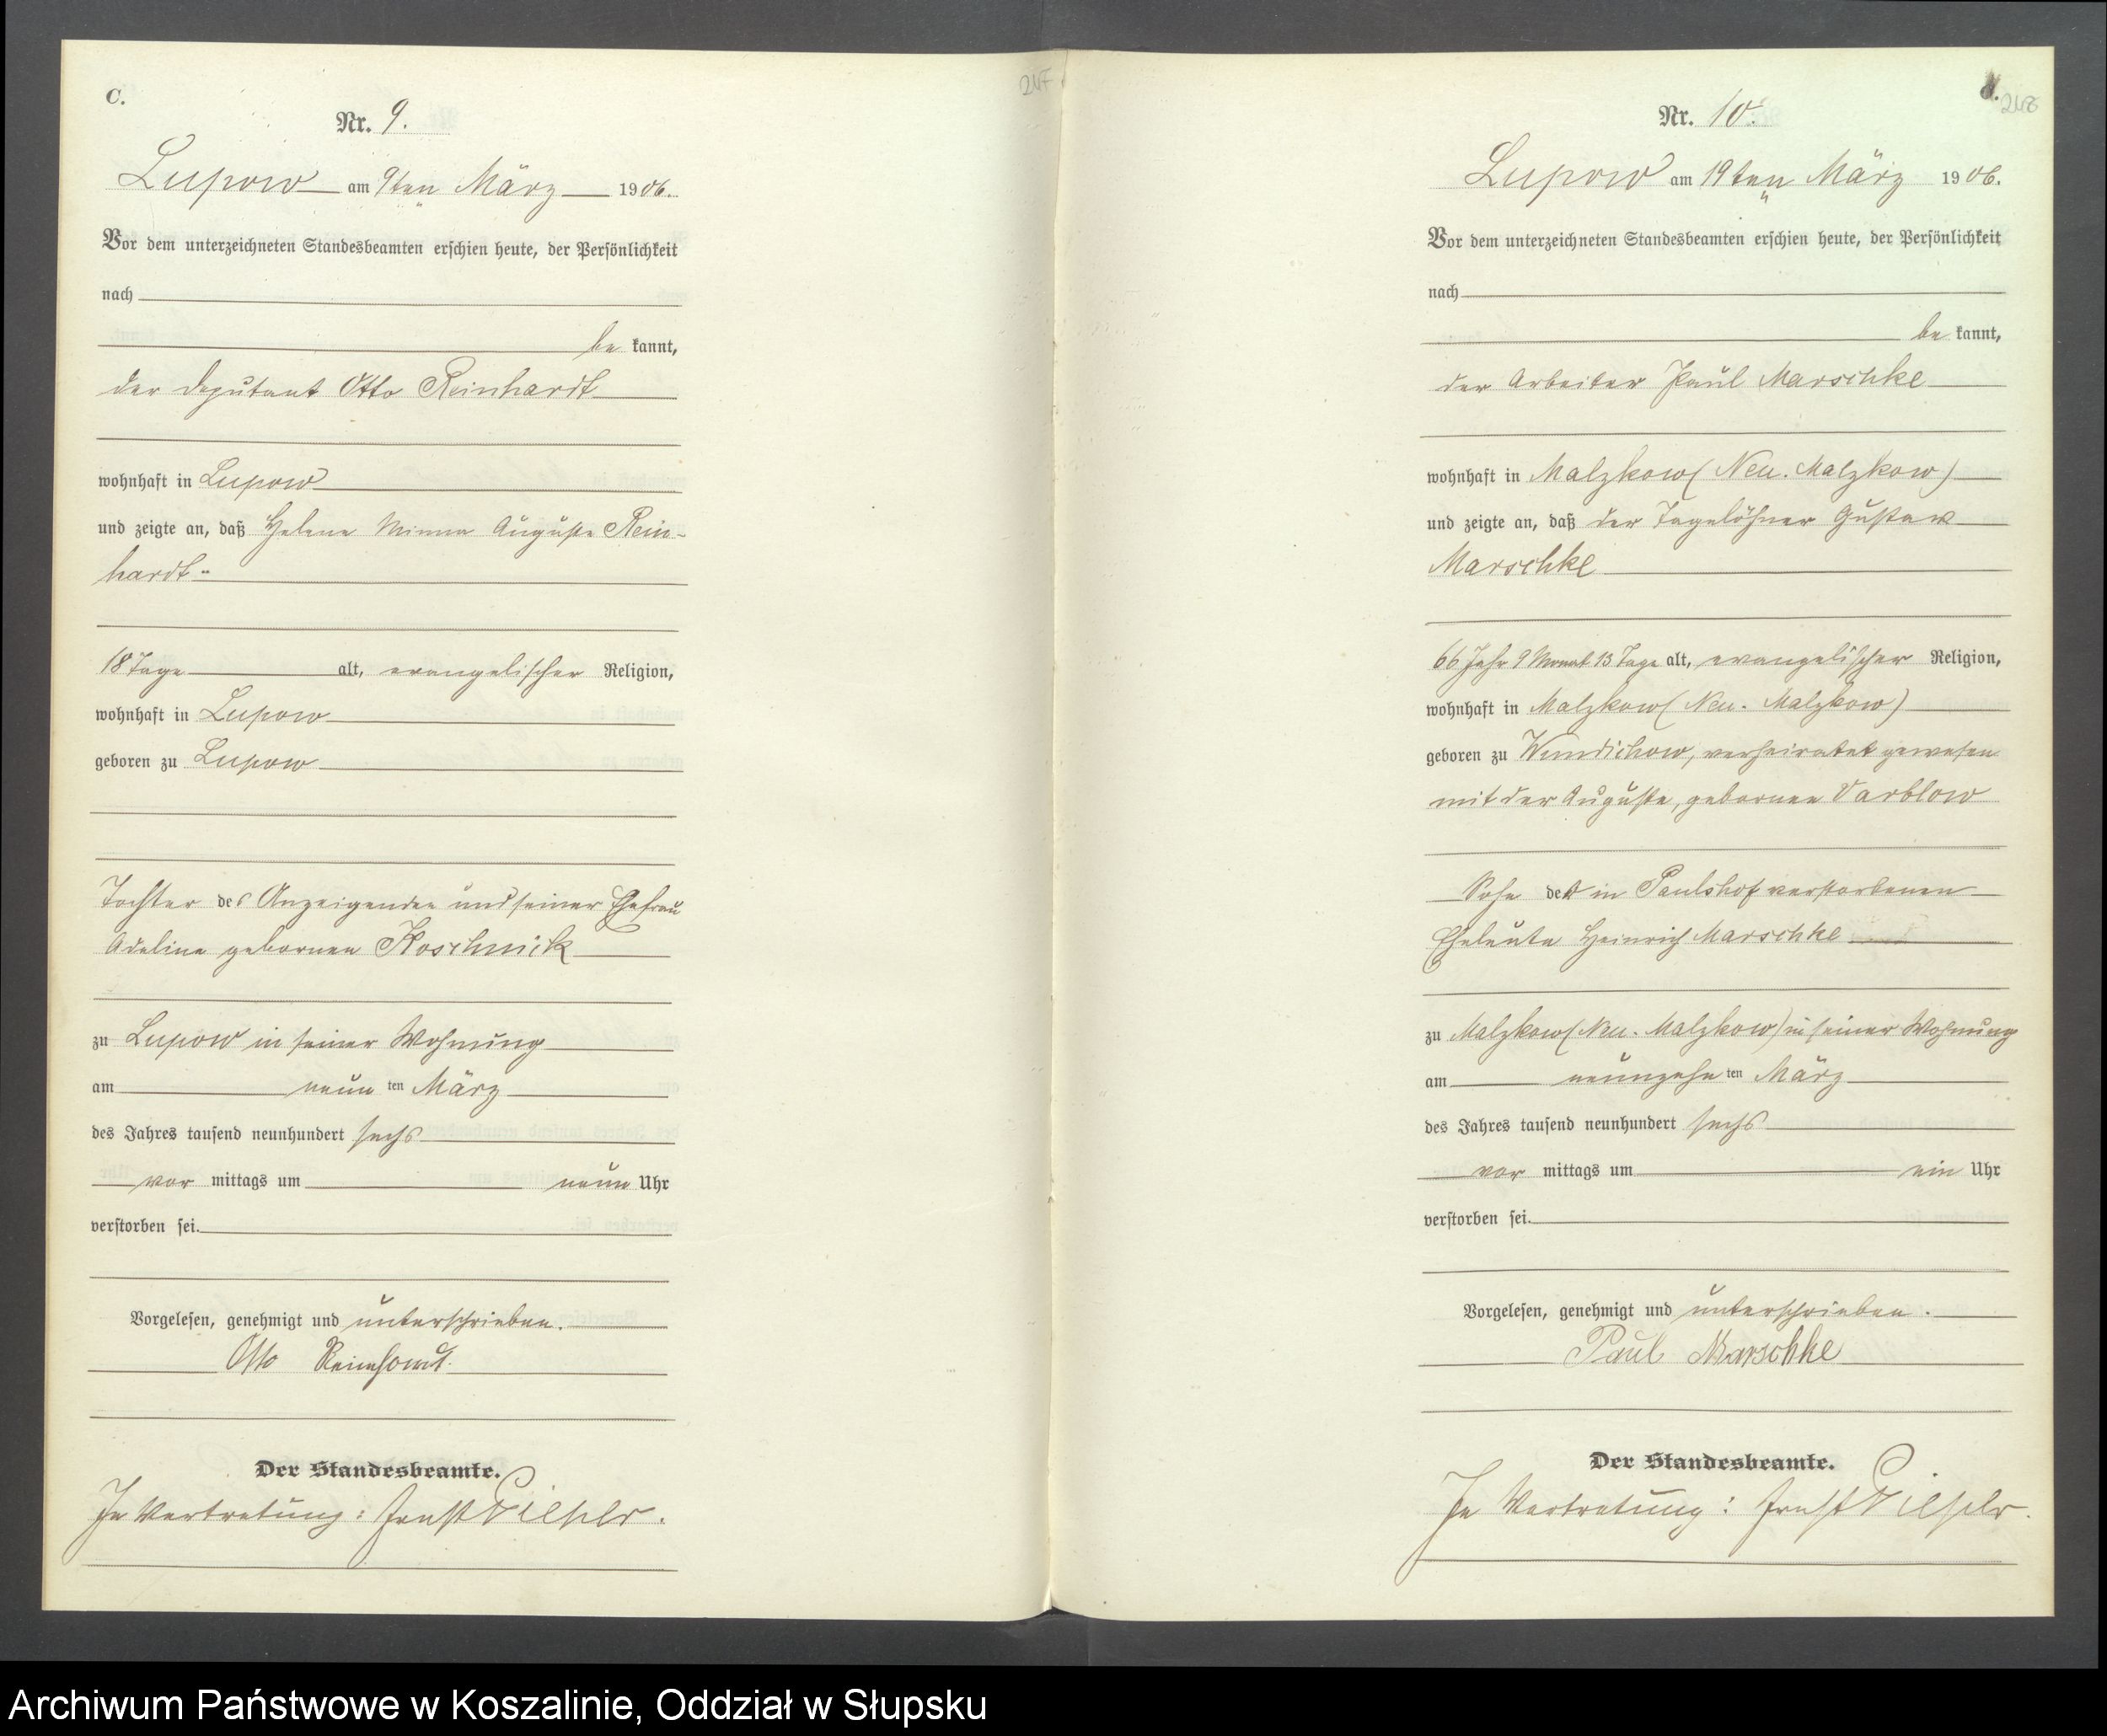 C.
Nr. 9.
Lupow am 9ten März 1906.
Vor dem unterzeichneten Standesbeamten erschien heute, der Persönlichkeit
nach
be kannt,
der Deputant Otto Reinhardt
wohnhaft in Lupow
und zeigte an, daß Helene Minna Auguste Rein-
hardt
18 Tage alt, evangelischer Religion,
wohnhaft in Lupow
geboren zu Lupow
Tochter des Anzeigenden und seiner Ehefrau
Adeline gebornen Koschnick
zu Lupow in seiner Wohnung
am neun ten März
des Jahres tausend neunhundert sechs
vor mittags um neun Uhr
verstorben sei.
Vorgelesen, genehmigt und unterschrieben.
Otto Reinhardt.
Der Standesbeamte.
In Vertretung: Ernst Piepler.
247
d.
248
Nr. 10.
Lupow am 19ten März 1906.
Vor dem unterzeichneten Standesbeamten erschien heute, der Persönlichkeit
nach
be kannt,
der Arbeiter Paul Marschke
wohnhaft in Malzkow (Neu-Malzkow)
und zeigte an, daß der Tagelöhner Gustav
Marschke
66 Jahr 9 Monat 13 Tage alt, evangelischer Religion,
wohnhaft in Malzkow (Neu-Malzkow)
geboren zu Wundichow, verheiratet gewesen
mit der Auguste, gebornen Varblow
Sohn der in Paulshof verstorbenen
Eheleute Heinrich Marschke
zu Malzkow (Neu-Malzkow) in seiner Wohnung
am neunzehn ten März
des Jahres tausend neunhundert sechs
vor mittags um ein Uhr
verstorben sei.
Vorgelesen, genehmigt und unterschrieben.
Paul Marschke
Der Standesbeamte.
In Vertretung: Ernst Piepler.
Archiwum Państwowe w Koszalinie, Oddział w Słupsku